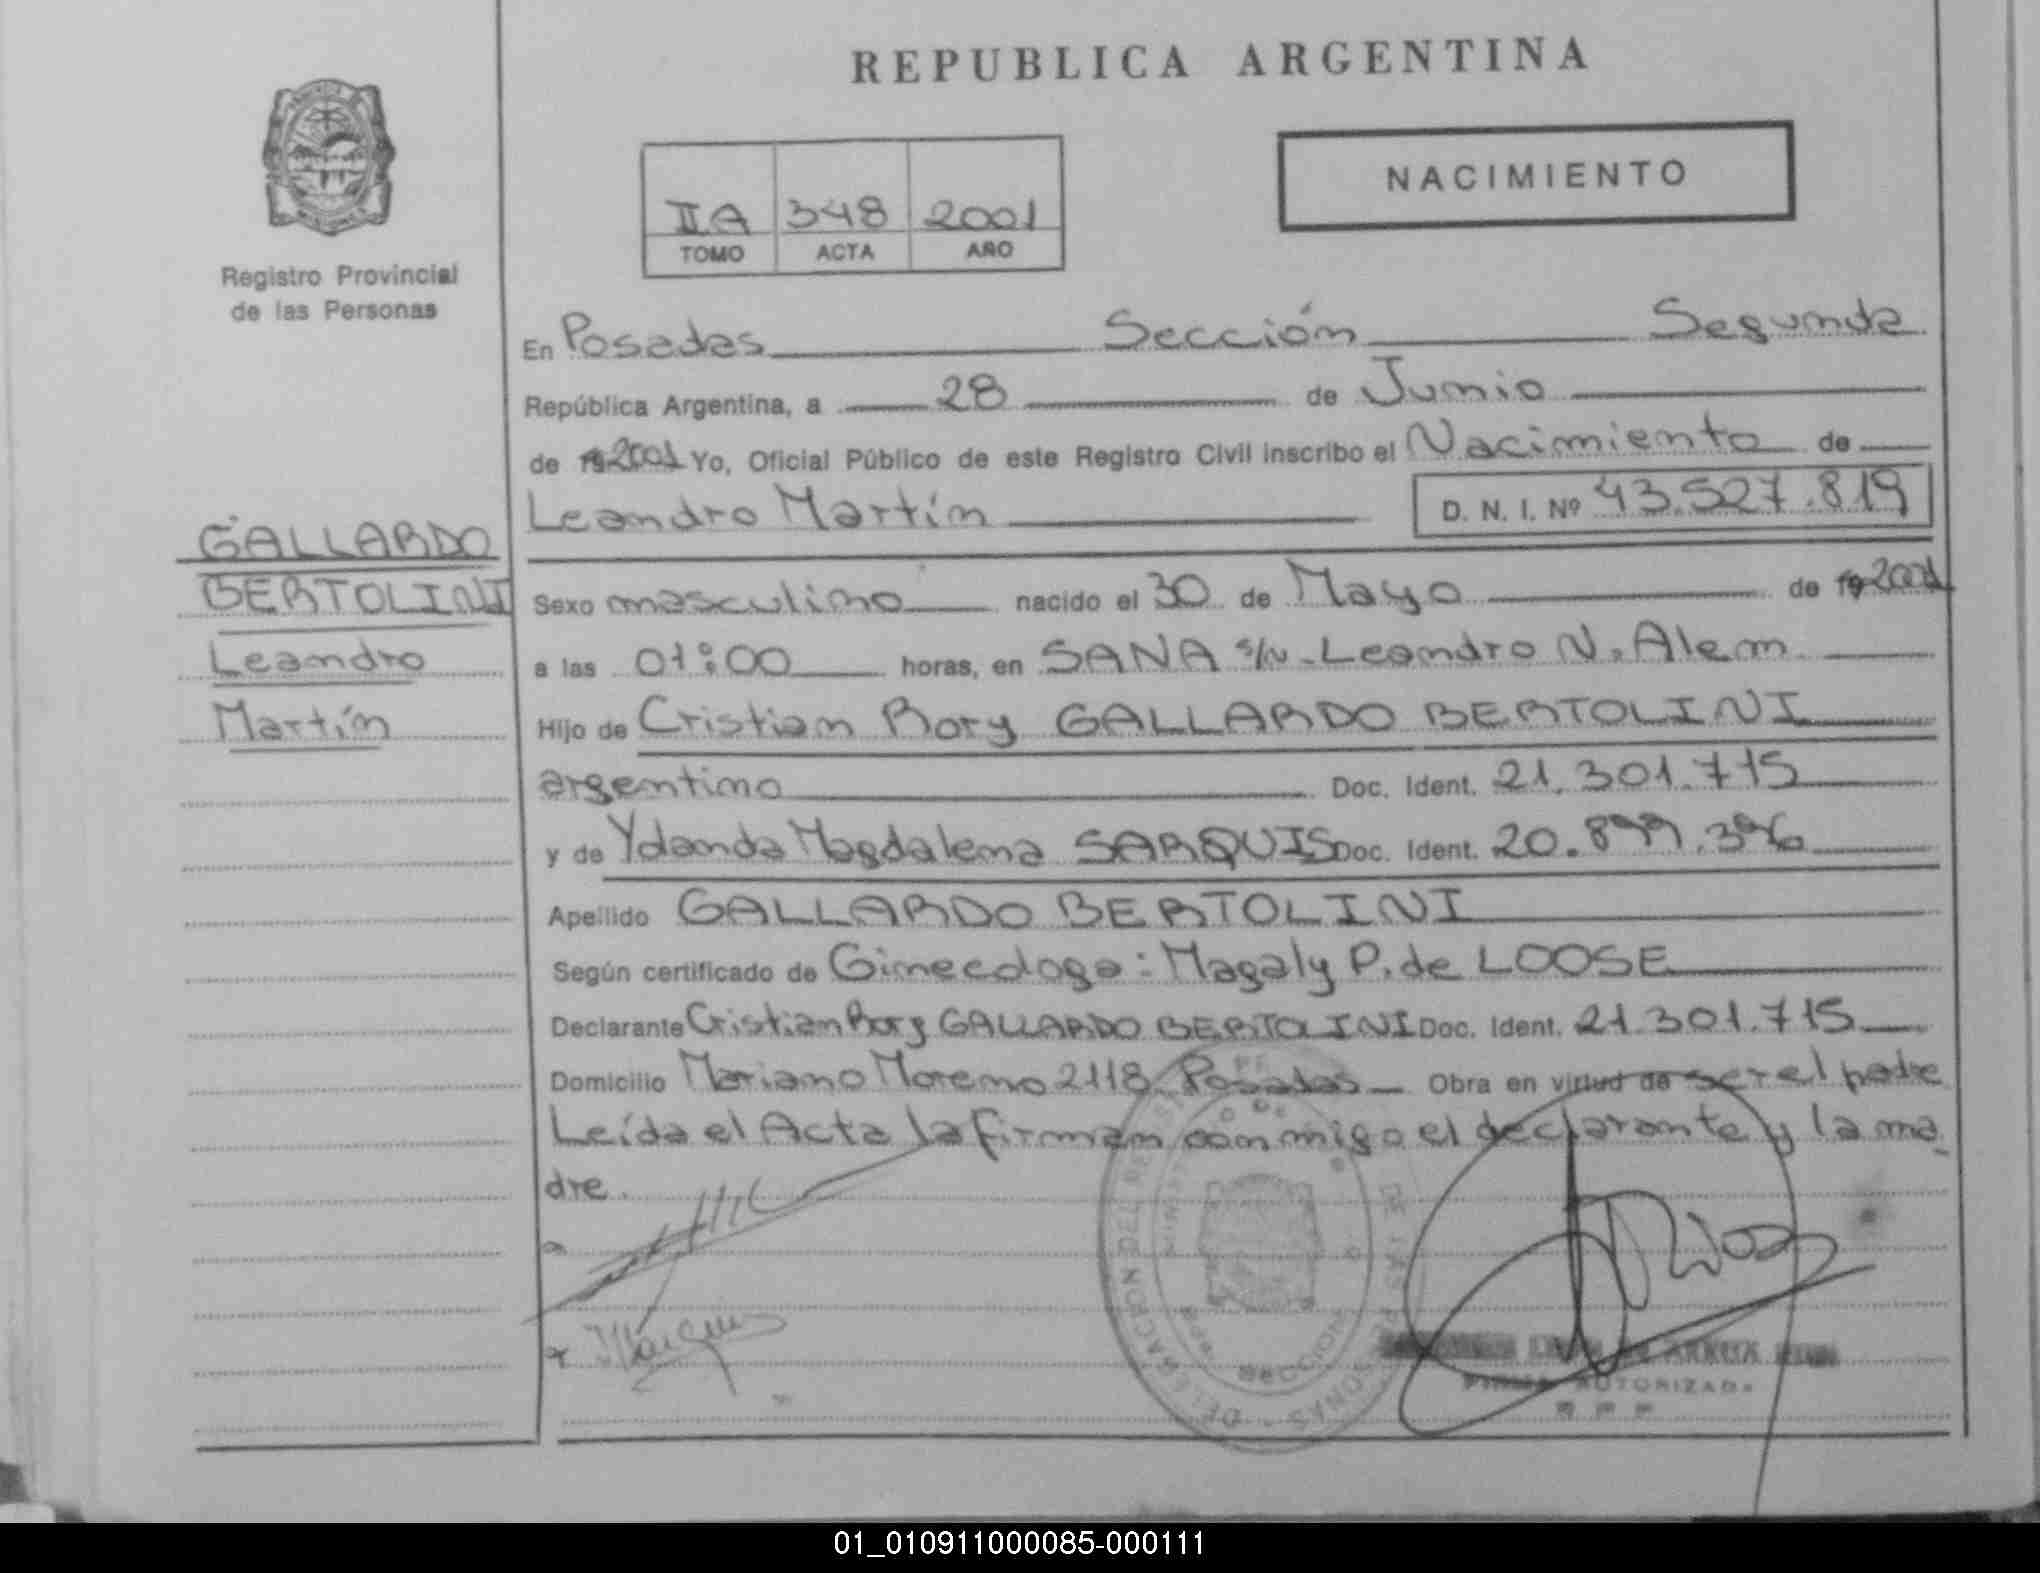 REPUBLICA ARGENTINA
NACIMIENTO
IIA 348 2001
TOMO ACTA AÑO
Registro Provincial
de las Personas
En Posadas Sección Segunda
República Argentina, a 28 de Junio
de 192001 Yo, Oficial Público de este Registro Civil inscribo el Nacimiento de
Leandro Martín D. N. I. Nº 43.527.819
GALLARDO
BERTOLINI
Leandro
Martín
Sexo masculino nacido el 30 de Mayo de 192001
a las 01:00 horas, en SANA s/n. Leandro N. Alem
Hijo de Cristian Rory GALLARDO BERTOLINI
argentino Doc. Ident. 21.301.715
y de Yolanda Magdalena SARQUIS Doc. Ident. 20.899.396
Apellido GALLARDO BERTOLINI
Según certificado de Ginecologa: Magaly P. de LOOSE
Declarante Cristian Rory GALLARDO BERTOLINI Doc. Ident. 21.301.715
Domicilio Mariano Moreno 2118 Posadas Obra en virtud de ser el padre
Leída el Acta la firman conmigo el declarante y la ma
dre.
FIRMA AUTORIZADA
01_010911000085-000111